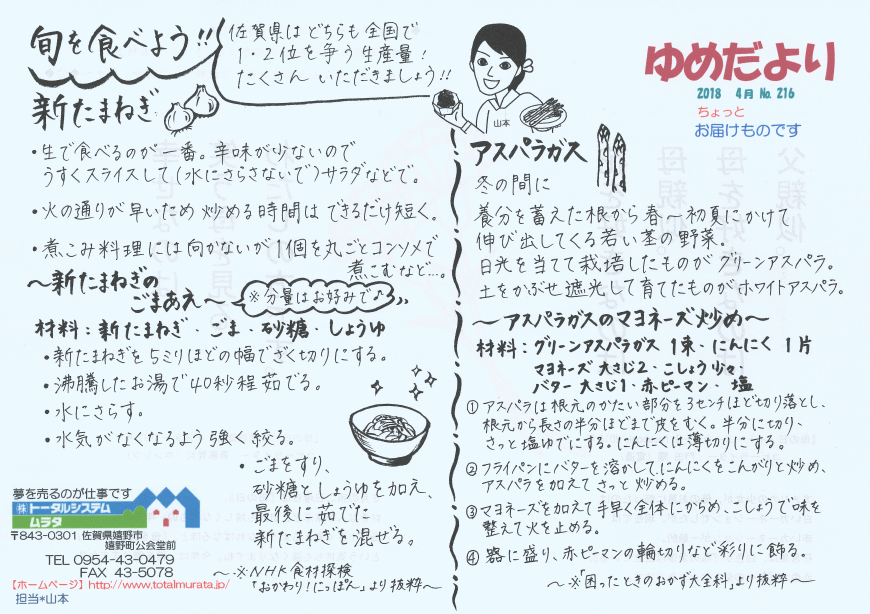 旬を食べよう!!
佐賀県はどちらも全国で
1・2位を争う生産量!
たくさん いただきましょう!!
ゆめだより
2018 4月 No.216
ちょっと
お届けものです
山本
新たまねぎ
・生で食べるのが一番。辛味が少ないので
うすくスライスして(水にさらさないで)サラダなどで。
・火の通りが早いため 炒める時間は できるだけ短く。
・煮こみ料理には向かないが1個を丸ごとコンソメで
煮こむなど…。
〜新たまねぎの
ごまあえ〜
※分量はお好みで♪
材料:新たまねぎ・ごま・砂糖・しょうゆ
・新たまねぎを5ミリほどの幅でざく切りにする。
・沸騰したお湯で40秒程茹でる。
・水にさらす。
・水気がなくなるよう強く絞る。
・ごまをすり、
砂糖としょうゆを加え、
最後に茹でた
新たまねぎを混ぜる。
〜※NHK食材探検
「おかわり!にっぽん」より抜粋〜
夢を売るのが仕事です
㈱トータルシステム
ムラタ
〒843-0301 佐賀県嬉野市
嬉野町公会堂前
TEL 0954-43-0479
FAX 43-5078
【ホームページ】http://www.totalmurata.jp/
担当*山本
アスパラガス
冬の間に
養分を蓄えた根から春〜初夏にかけて
伸び出してくる若い茎の野菜.
日光を当てて栽培したものが グリーンアスパラ。
土をかぶせ遮光して育てたものがホワイトアスパラ。
〜アスパラガスのマヨネーズ炒め〜
材料:グリーンアスパラガス 1束・にんにく 1片
マヨネーズ 大さじ2・こしょう少々・
バター大さじ1・赤ピーマン・塩
① アスパラは根元のかたい部分を3センチほど切り落とし、
根元から長さの半分ほどまで皮をむく。半分に切り、
さっと塩ゆでにする。にんにくは薄切りにする。
② フライパンにバターを溶かして、にんにくをこんがりと炒め、
アスパラを加えてさっと炒める。
③ マヨネーズを加えて手早く全体にからめ、こしょうで味を
整えて火を止める。
④ 器に盛り、赤ピーマンの輪切りなど彩りに飾る。
〜※「困ったときのおかず大全科」より抜粋〜